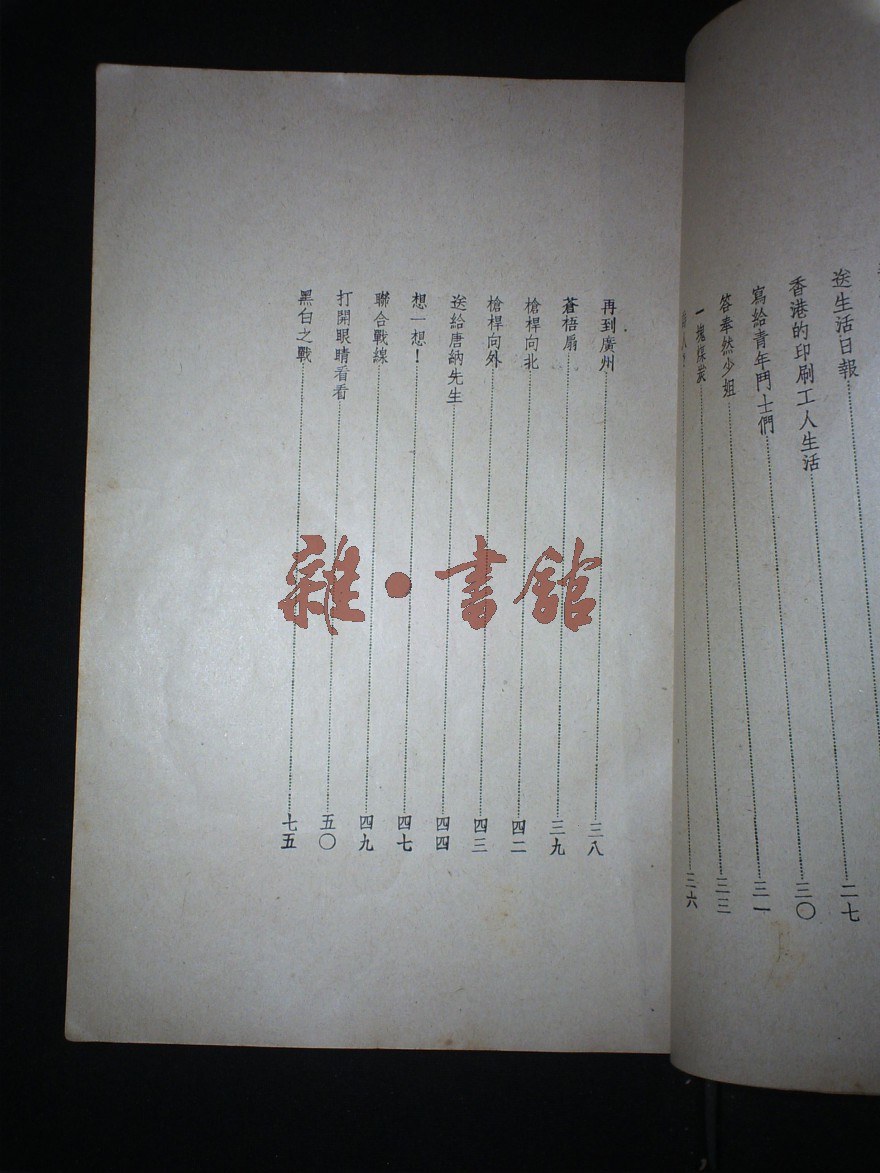 送生活日報 二七
香港的印刷工人生活 三〇
寫給青年鬥士們 三一
答奉然少姐 三三
一塊煤炭
三六
再到廣州 三八
蒼梧扇 三九
槍桿向北 四二
槍桿向外 四三
送給唐納先生 四四
想一想！ 四七
聯合戰線 四九
打開眼睛看看 五〇
黑白之戰 七五
雜·書館